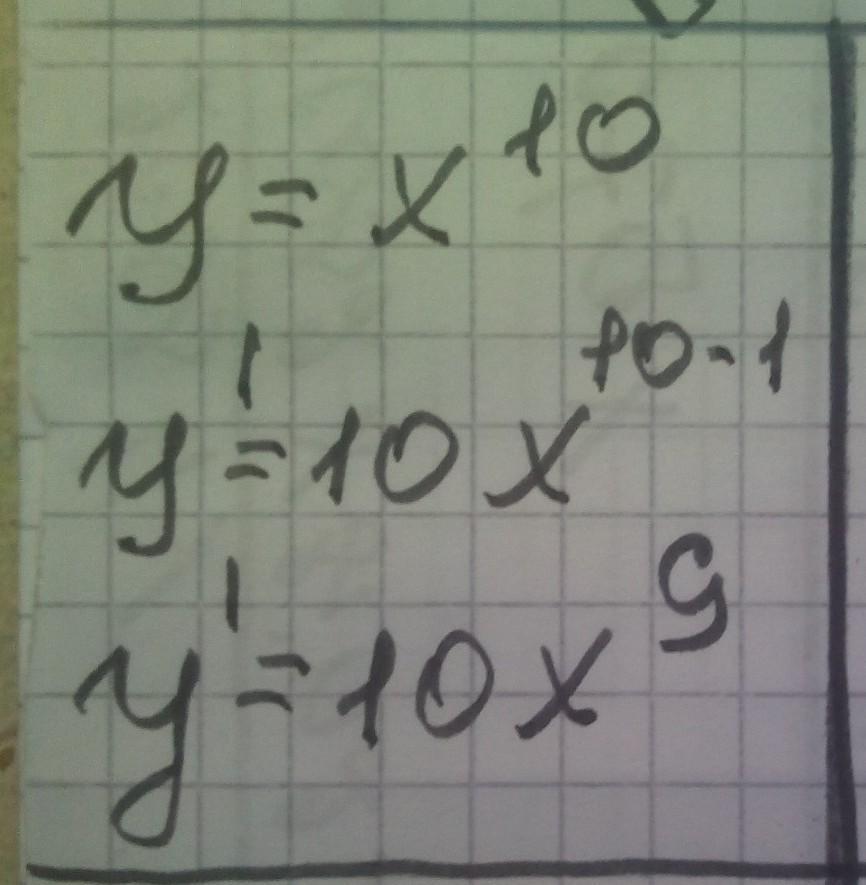 y = x¹⁰
y' = 10x¹⁰⁻¹
y' = 10x⁹